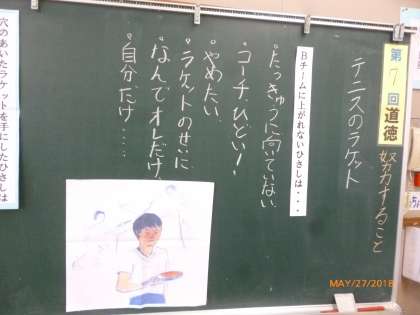 第7回道徳 努力すること
テニスのラケット
Bチームに上がれないひさしは・・・
・たっきゅうに向いていない。
・コーチ、ひどい!
・やめたい。
・ラケットのせいに
・なんでオレだけ
・自分だけ・・・・
穴のあいたラケットを手にしたひさしは
MAY/27/2018